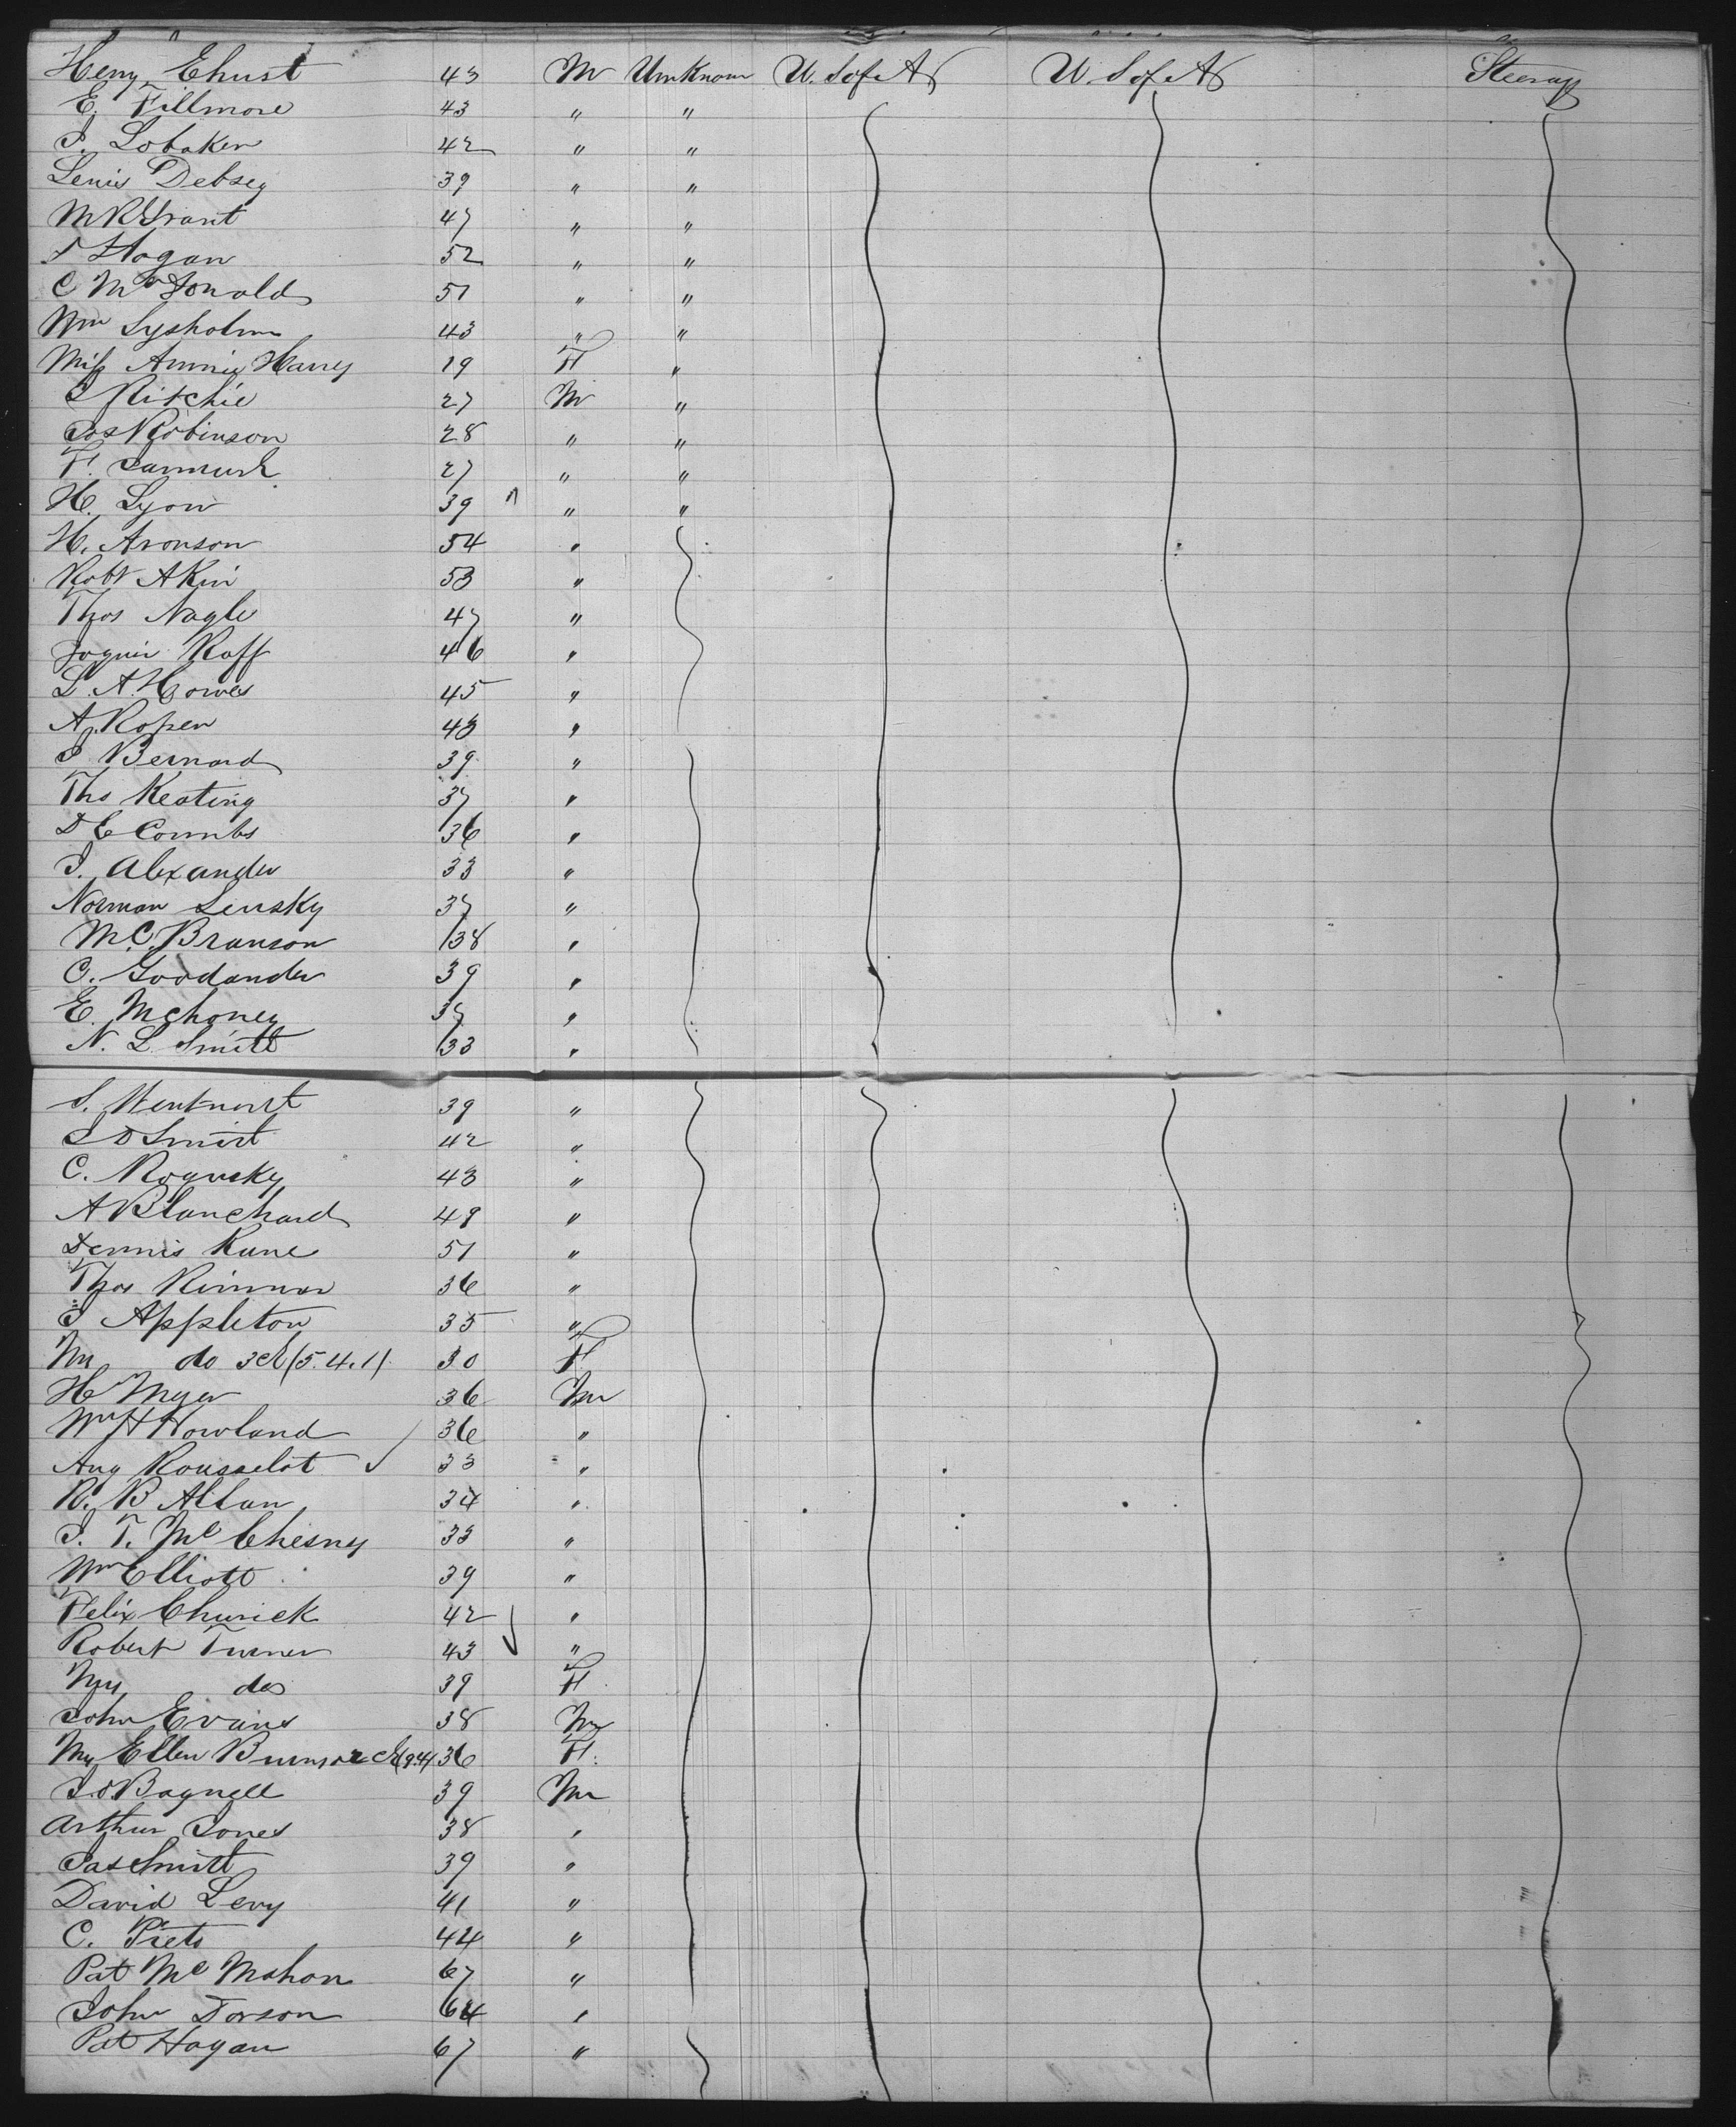 Heny Ehust 43 M UnKnown U. S of A U. S of A Steerage
E. Fillmore 43 " "
J. Lobaken 42 " "
Lenis Debsey 39 " "
M R Grant 47 " "
J Hogan 52 " "
C McDonald 51 " "
Wm Lysholm 43 " "
Miss Annie Harry 19 F "
J Ritchie 27 M "
Jos Robinson 28 " "
F. 27 " "
H. Lyon 39 " "
H. Aronson 54 "
Robt AKin 53 "
Thos Nagle 47 "
Roff 46 "
L. A. Howes 45 "
A. Ropen 43 "
J Bernard 39 "
Tho Keating 37 "
D E Coombs 36 "
J. Alexander 33 "
Norman Lensky 37 "
M. C. Branson 38 "
C. Goodander 39 "
E. Mahoney 37 "
N. L Smith 33 "
S. 39 "
J D Smith 42 "
C. Rogusky 43 "
A Blanchard 49 "
Dennis Kane 51 "
Thos Rimmar 36 "
J Appleton 35 "
Mrs do 3 ch (5.4.1) 30 F
H Myer 36 M
Wm H Howland 36 "
Aug Rousselot 33 "
R. B Allan 34 "
J. T. Mc Chesny 33 "
Wm Elliott 39 "
Felix Chunick 42 "
Robert Turner 43 "
Mrs do 39 F
John Evans 38 M
Mrs Ellen Bunnor 2 ch (9.4) 36 F.
J. O. Bagnell 39 M
Arthur Jones 38 "
Jas Smith 39 "
David Levy 41 "
C. Piets 44 "
Pat Mc Mahon 67 "
John Dorson 64 "
Pat Hogan 67 "